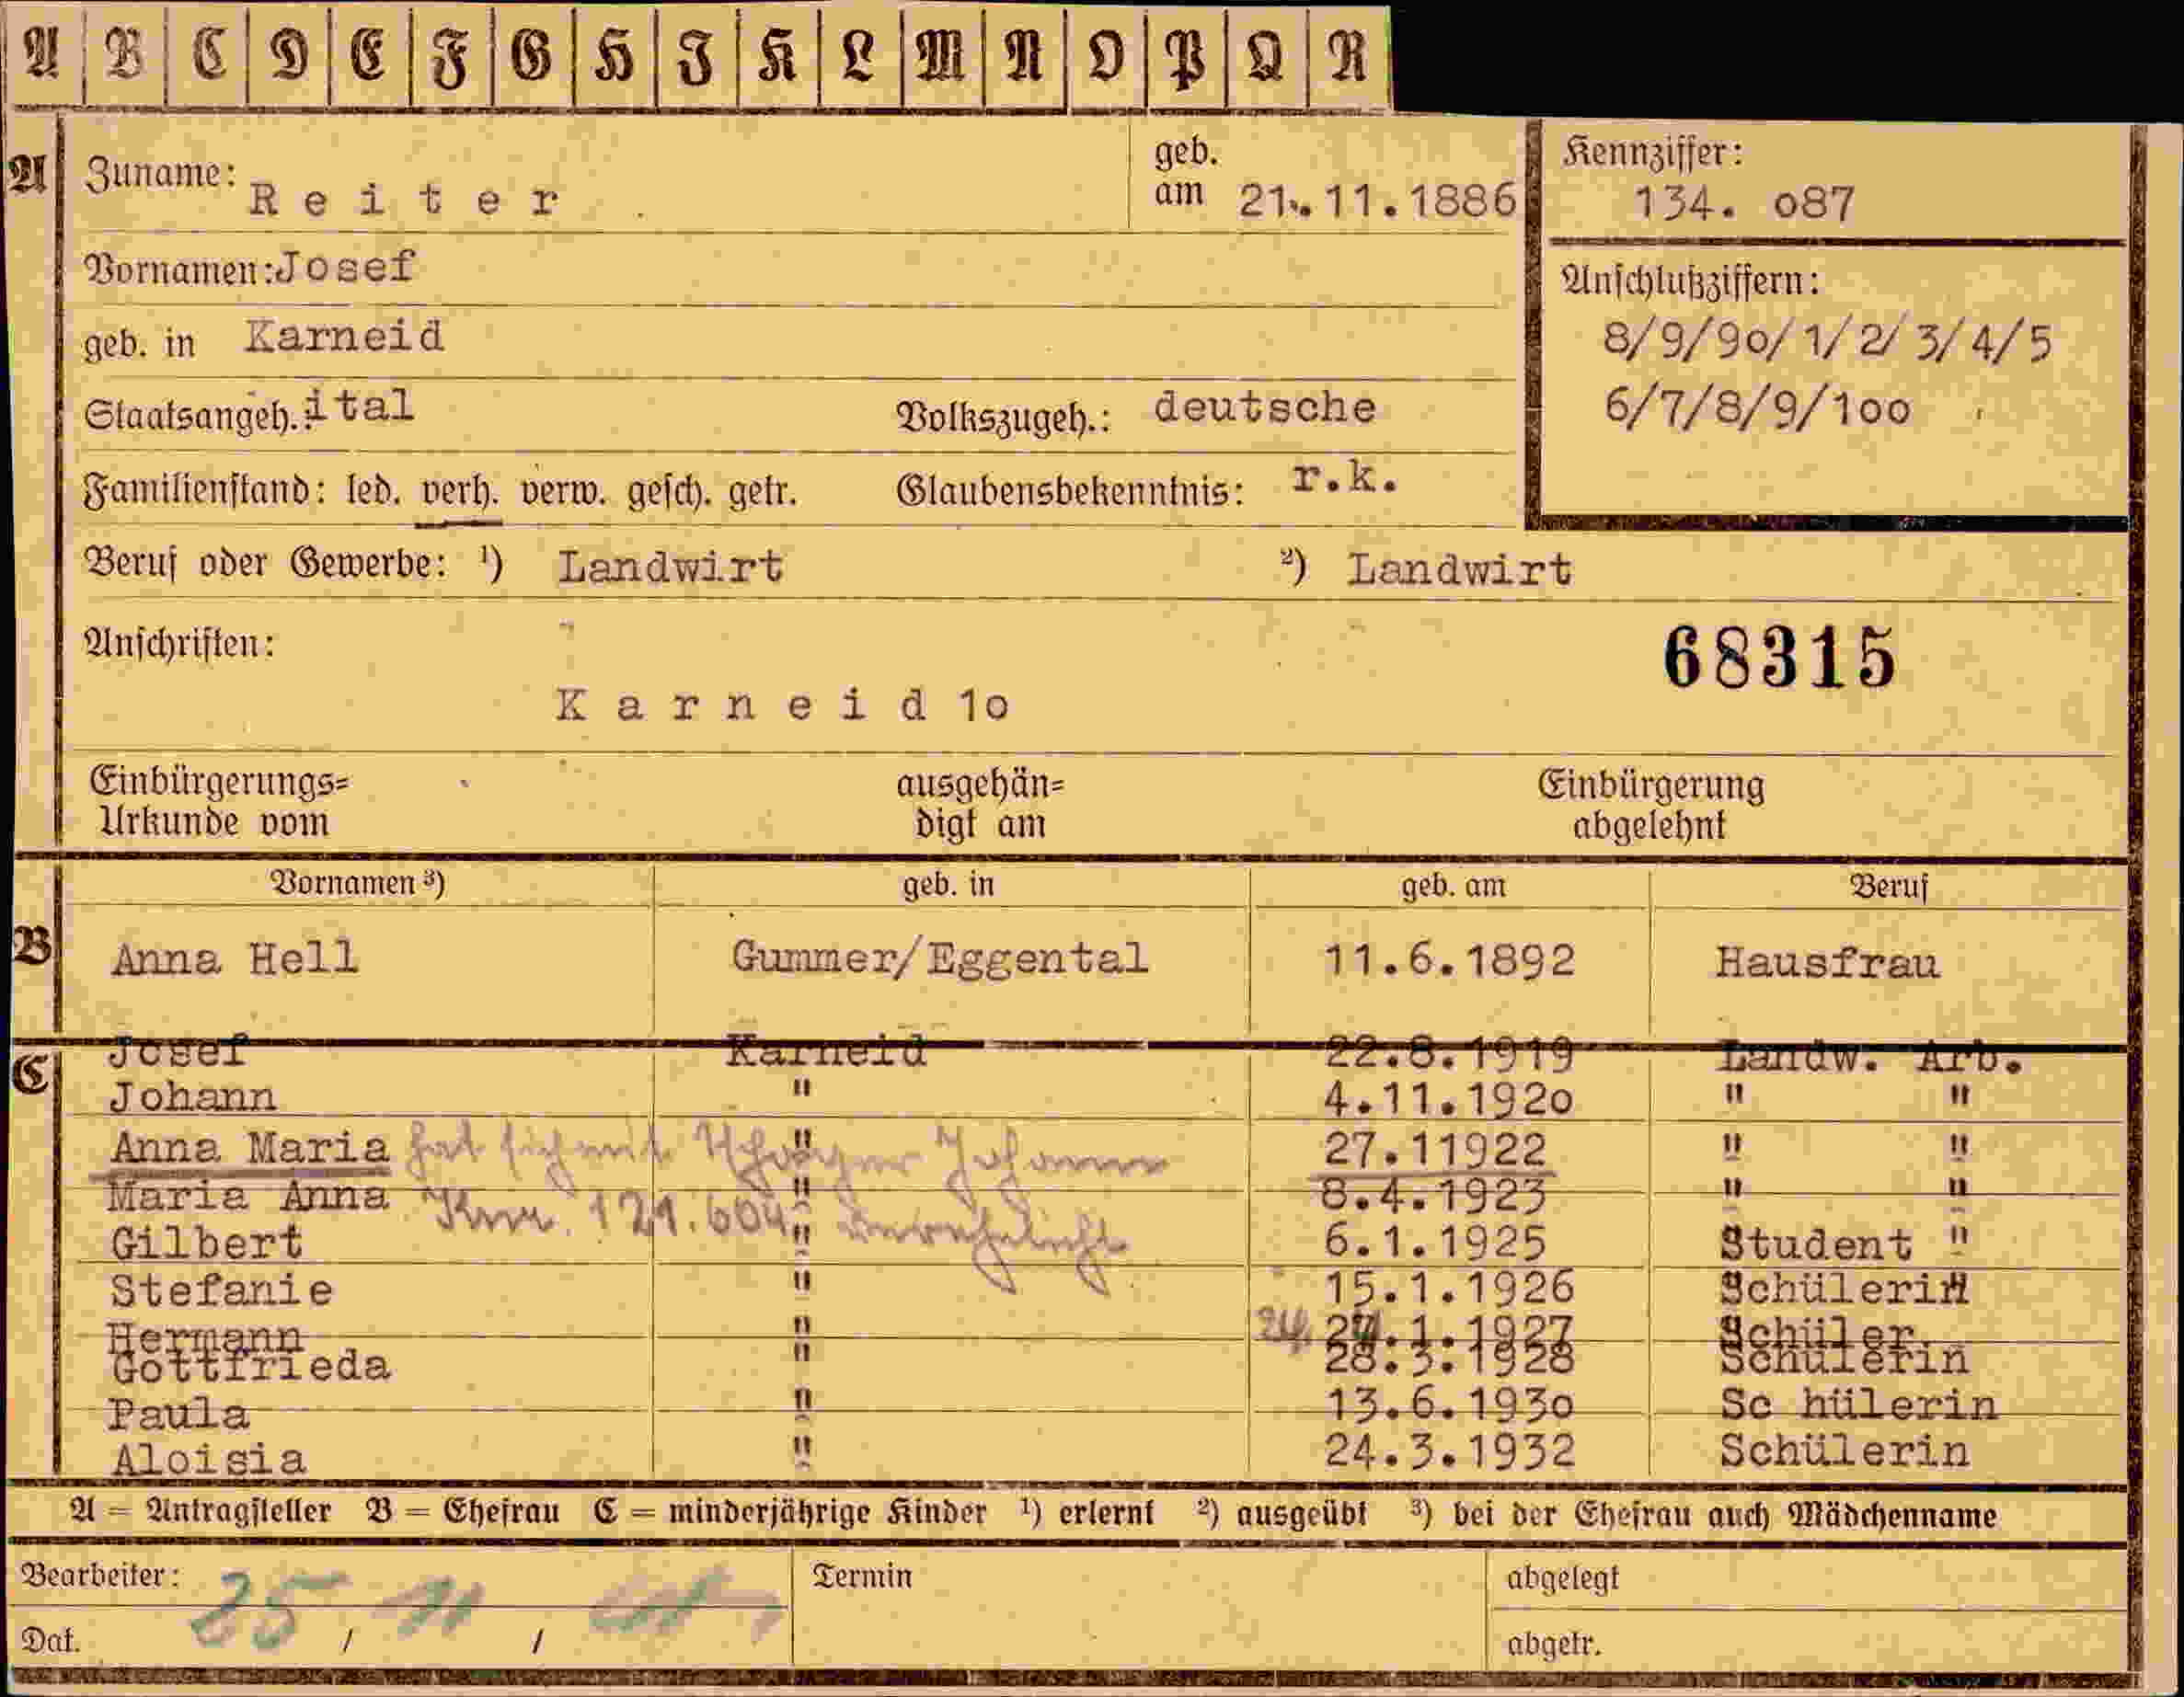 A B C D E F G H I K L M N O P Q R
A Zuname: Reiter geb. am 21.11.1886
Kennziffer: 134. o87
Vornamen: Josef
Anschlußziffern:
geb. in Karneid
8/9/9o/1/2/3/4/5
Staatsangeh.: ital Volkszugeh.: deutsche
6/7/8/9/1oo
Familienstand: led. verh. verw. gesch. getr. Glaubensbekenntnis: r.k.
Beruf oder Gewerbe: ¹) Landwirt ²) Landwirt
Anschriften: 68315
Karneid 1o
Einbürgerungs= ausgehän= Einbürgerung
Urkunde vom digt am abgelehnt
Vornamen ³) geb. in geb. am Beruf
B Anna Hell Gummer/Eggental 11.6.1892 Hausfrau
C Josef Karneid 22.8.1919 Landw. Arb.
Johann " 4.11.192o " "
Anna Maria hat sich mit Johann " 27.11922 " "
Maria Anna Knr. 121.604 verehelicht " 8.4.1923 " "
Gilbert " 6.1.1925 Student "
Stefanie " 15.1.1926 Schülerin
Hermann " 24. 27.1.1927 Schüler
Gottfrieda " 28.3.1928 Schülerin
Paula " 13.6.193o Sc hülerin
Aloisia " 24.3.1932 Schülerin
A = Antragsteller B = Ehefrau C = minderjährige Kinder ¹) erlernt ²) ausgeübt ³) bei der Ehefrau auch Mädchenname
Bearbeiter: Termin abgelegt
Dat. 25 / 11 / abgetr.